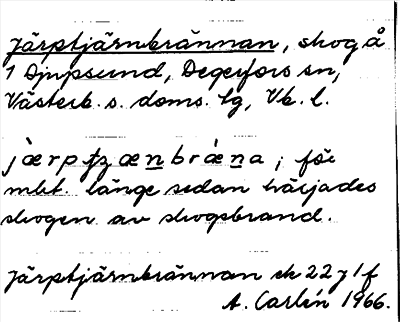 Järptjärnbrännan, skog å
1 Djupsund, Degerfors sn,
Västerb. s. doms. lg, Vb. l.
jæ̀rpt̡ʒæn̲bræ̀n̲a ; för
mkt. länge sedan härjades
skogen av skogsbrand.
Järptjärnbrännan sk 22 J 1 f
A. Carlén 1966.